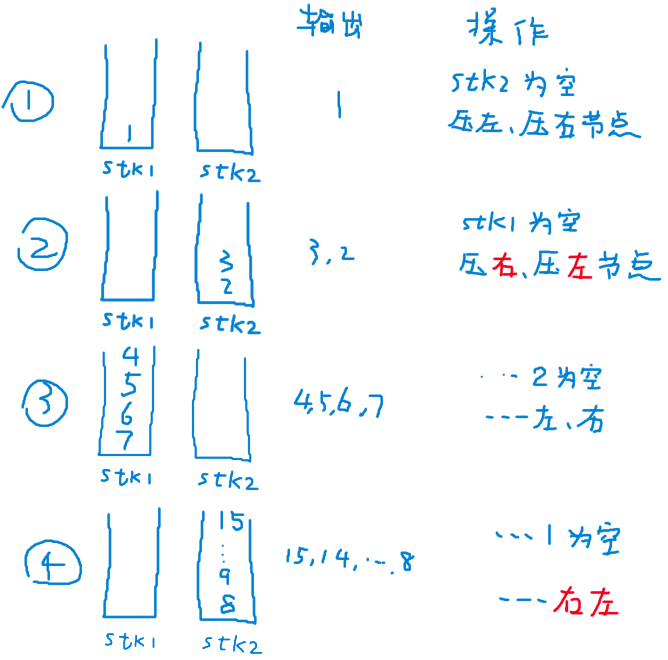 输出 操作
① 1 stk1 stk2 1 stk2为空
压左、压右节点
② 3 2 stk1 stk2 3,2 stk1为空
压右、压左节点
③ 4 5 6 7 stk1 stk2 4,5,6,7 ...2为空
---左、右
④ 15 ... 9 8 stk1 stk2 15,14,...8 ...1为空
---右左